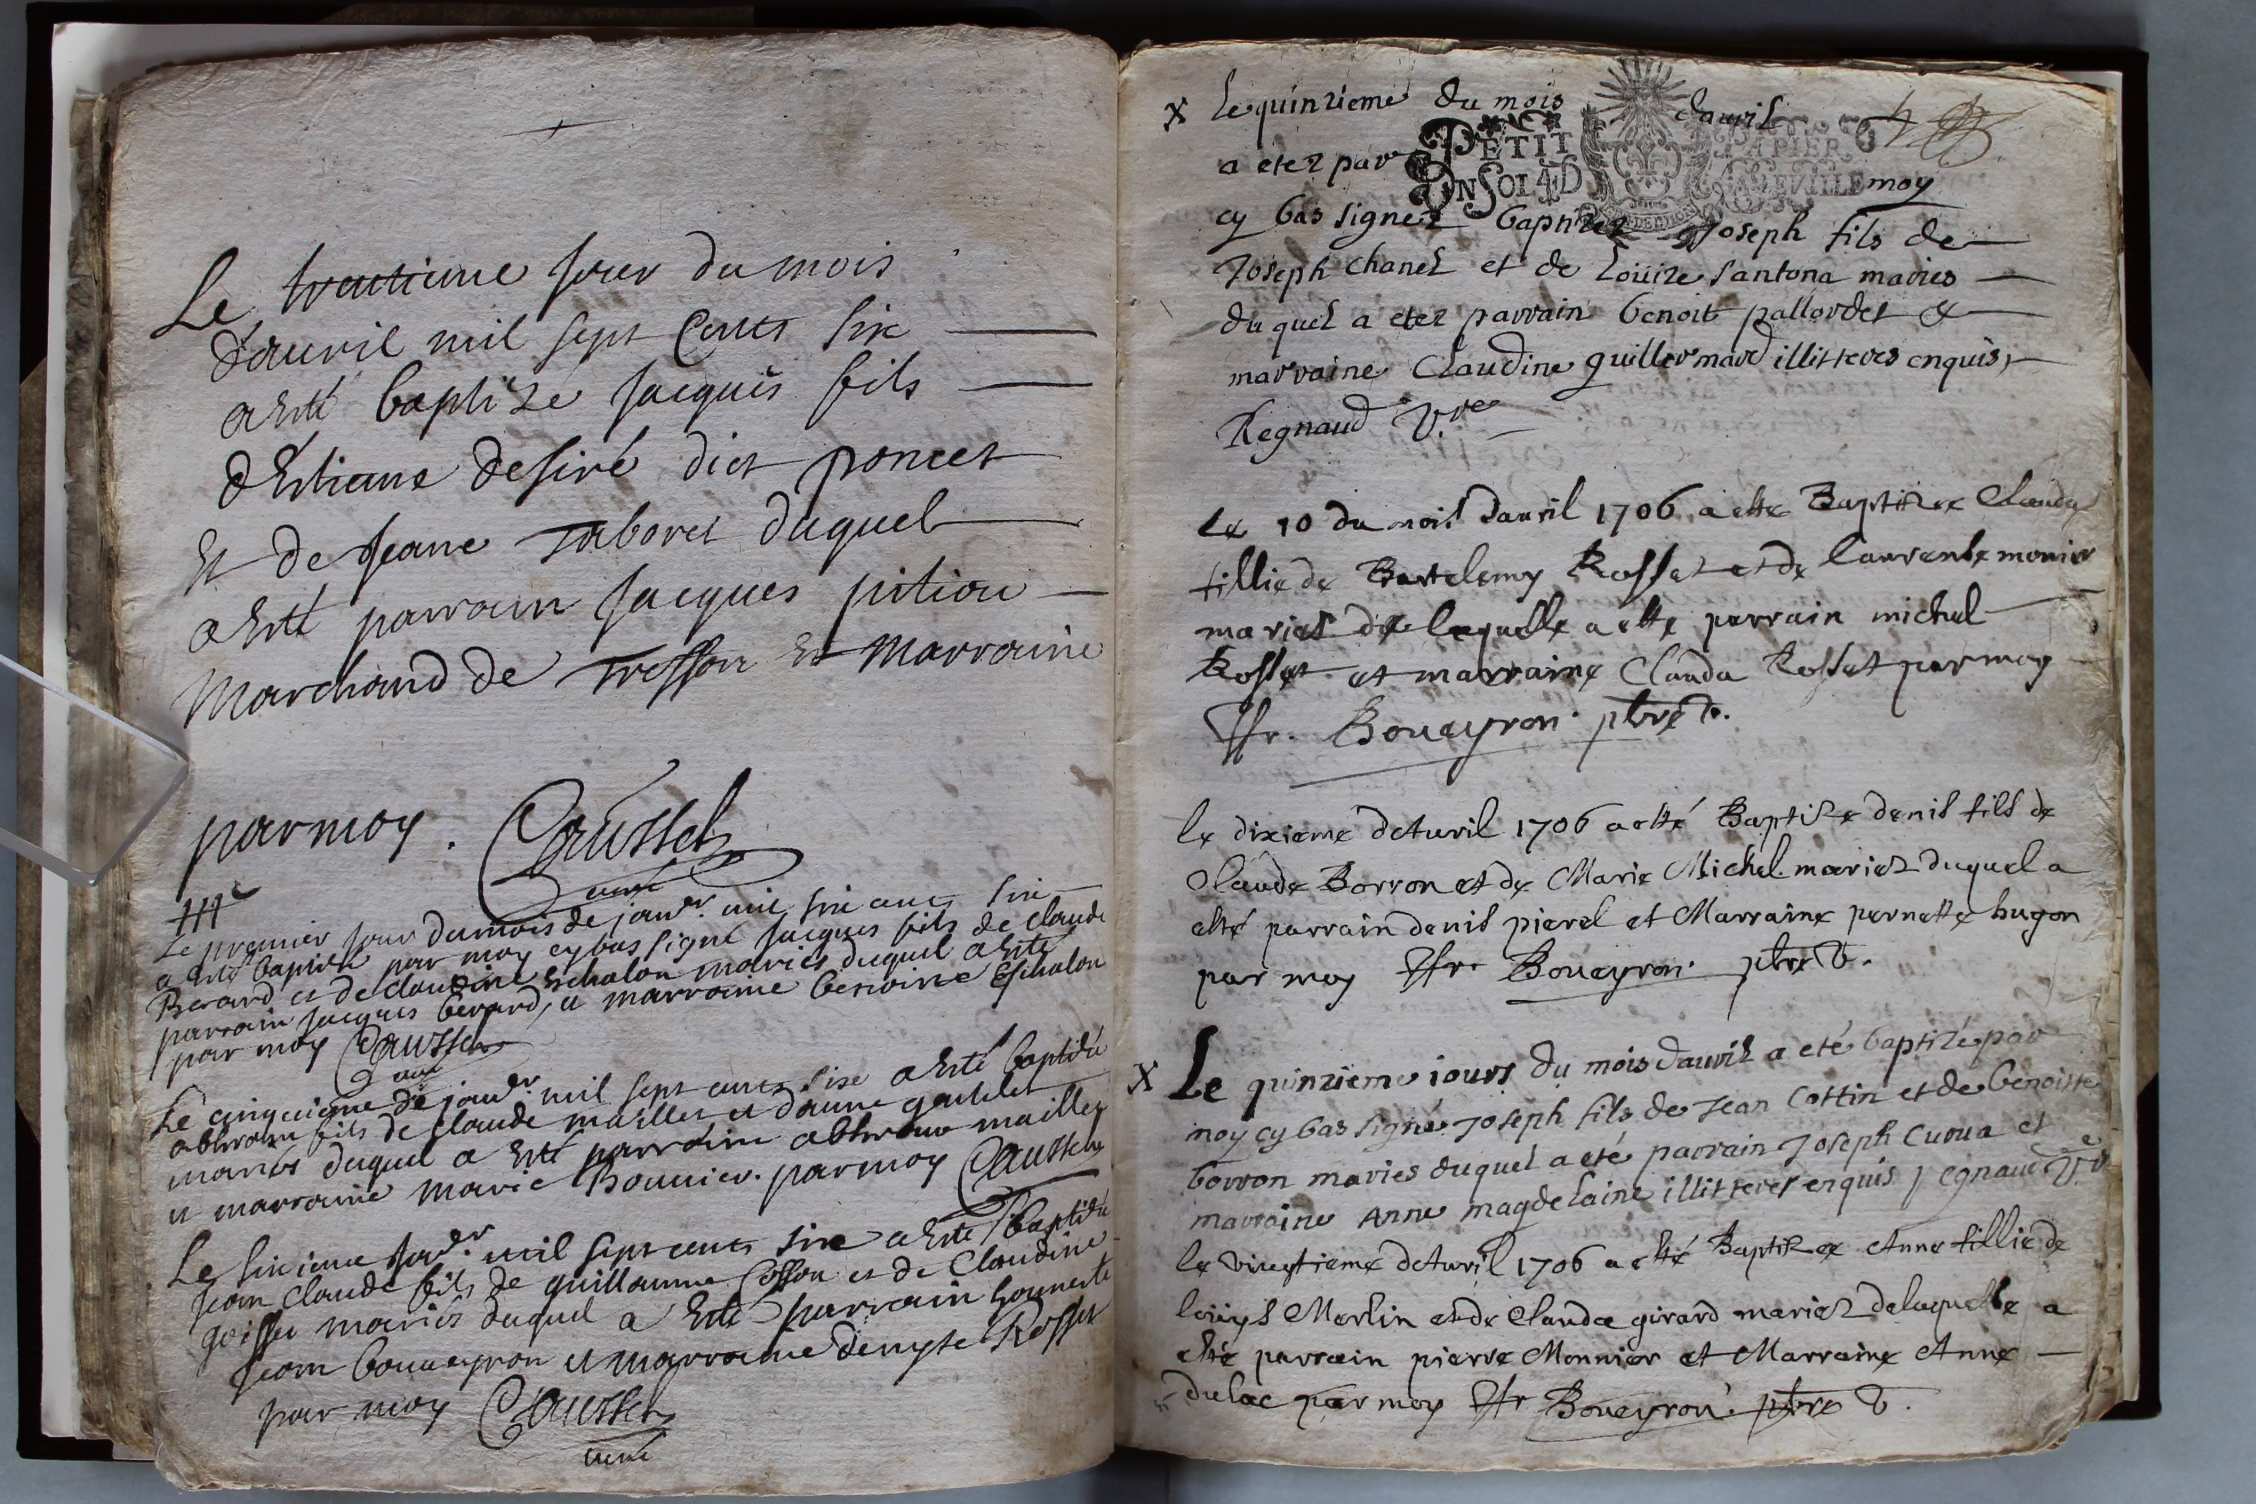 Le trentieme jour du mois
d'auvril mil sept Cents six
a esté baptizé jacques fils
d'Estiene desiré dict poncet
Et de jeane taboret duquel
a esté parrain jacques pition
Marchand de treffort et marraine
parmoy. Caussel
curé
Le premier jour du mois de janer. mil six cens six
a esté baptizé par moy cy bas signé jacques fils de claude
Berard et de claudine Eschalon mariés duquel a esté
parrain jacques berard, et marraine benoine Eschalon
par moy Caussel
curé
Le cinquieme de janer mil sept cents six a esté baptisé
abhram fils de claude maillet et danne goutelet
mariés duquel a esté parrain abhram maillet
et marraine marie Bonnier. parmoy Caussel
Le sixieme janer. mil sept cents six a esté baptisé
jean claude fils de guillaume Cosson et de Claudine
goiffon mariés duquel a esté parrain honneste
jean boueyron et marraine denyse Rosset
par moy Caussel
curé
x le quinzieme du mois dauvril
PETIT PAPIER
UN SOL 4D
a etez par moy
cy bas signez baptizez Joseph fils de
Joseph chanel et de Louize santona maries
duquel a etez parrain benoit pallordet &
marraine Claudine guillermard illitteres enquis
Regnaud V.re
Le 10 du mois dauril 1706 a este Baptizee Clauda
fillie de Bartelemy Rosset et de laurente monier
maries de laquelle a este parrain michel
Rosset et marraine Clauda Rosset par moy
ffr. Boueyron. pbre v.
le dixieme d'Avril 1706 a esté Baptize denis fils de
Claude Borron et de Marie Michel. mariez duquel a
esté parrain denis pierel et Marraine pernette hugon
par moy ffr. Boueyron. pbre v.
x Le quinzieme iours du mois dauvril a eté baptizé par
moy cy bas signé Joseph fils de Jean Cottin et de benoiste
borron maries duquel a eté parrain Joseph Cuoua et
marraine Anne magdelaine illitteres enquis regnaud V.re
le vingtieme d'Avril 1706 a esté Baptizee Anne fillie de
louys Merlin et de Claudae girard mariez de laquelle a
esté parrain pierre Monnier et Marraine Anne
dulac par moy ffr Boueyron. pbre v.